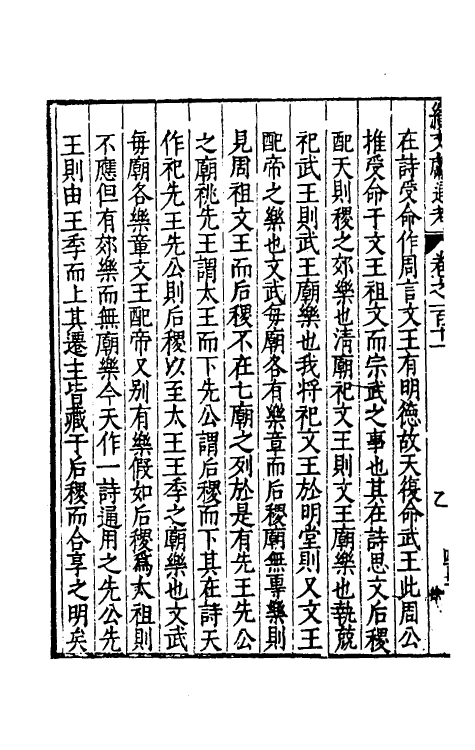 續文獻通考 卷之一百十一
在詩受命作周言文王有明德故天復命武王此周公
推受命于文王祖文而宗武之事也其在詩思文后稷
配天則稷之郊樂也淸廟祀文王則文王廟樂也執兢
祀武王則武王廟樂也我將祀文王於明堂則又文王
配帝之樂也文武每廟各有樂章而后稷廟無專樂則
見周祖文王而后稷不在七廟之列於是有先王先公
之廟祧先王謂太王而下先公謂后稷而下其在詩天
作祀先王先公則后稷以至太王王季之廟樂也文武
每廟各樂章文王配帝又别有樂假如后稷爲太祖則
不應但有郊樂而無廟樂今天作一詩通用之先公先
王則由王季而上其遷主皆藏于后稷而合享之明矣